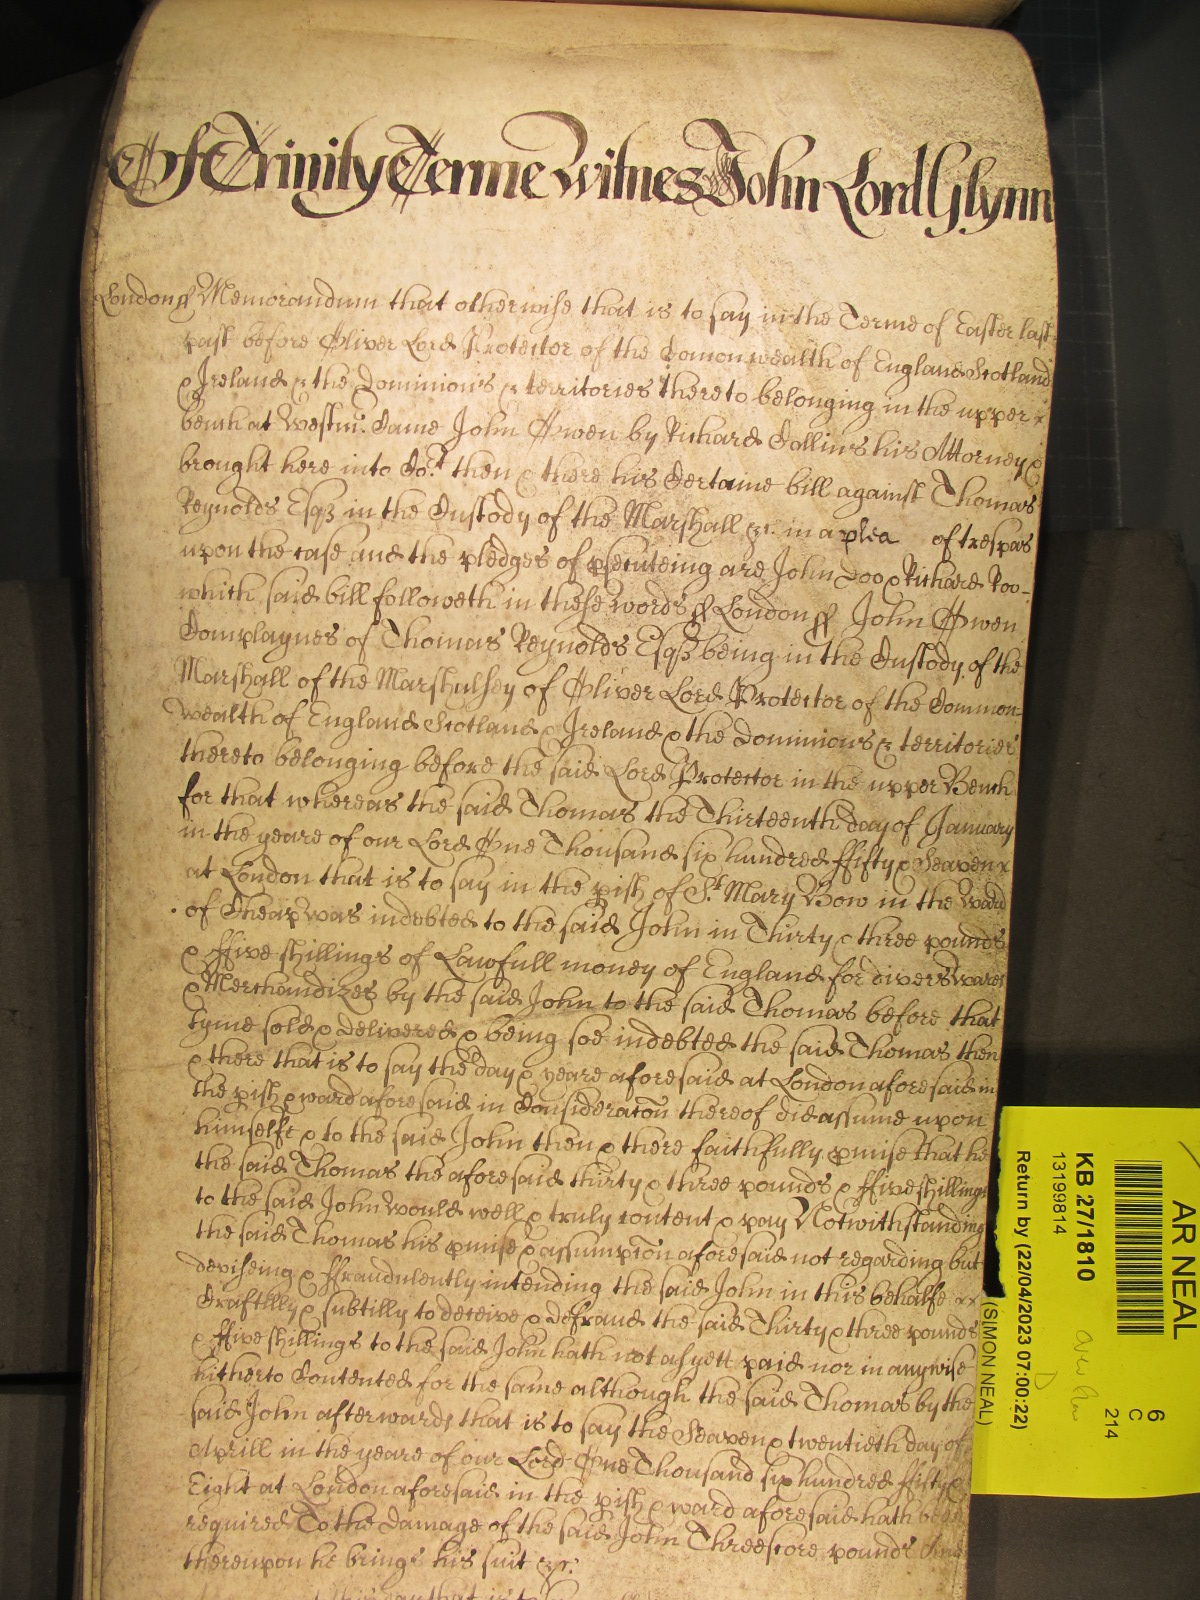 Of Trinity Terme Witnes John Lord Glynn
London ss Memorandum that otherwise that is to say in the Terme of Easter last
past before Oliver Lord Protector of the Comonwealth of England Scotland
& Ireland & the Dominions & territories thereto belonging in the upper
bench at Westm: Came John Owen by Richard Collins his Attorney &
brought here into Co:rt then & there his Certaine bill against Thomas
Reynolds Esqz in the Custody of the Marshall &c. in a plea of trespas
upon the case and the pledges of psecuteing are John Doo & Richard Roo
which said bill followeth in these words ss London ss John Owen
Complaynes of Thomas Reynolds Esqz being in the Custody of the
Marshall of the Marshalsey of Oliver Lord Protector of the Common=
wealth of England Scotland & Ireland & the Dominions & territories
thereto belonging before the said Lord Protector in the upper Bench
for that whereas the said Thomas the Thirteenth day of January
in the yeare of our Lord One Thousand six hundred ffifty & Seaven
at London that is to say in the pish of St. Mary Bow in the Ward
of Cheap was indebted to the said John in Thirty & three pounds
& ffive shillings of Lawfull money of England for divers wares
& Merchandizes by the said John to the said Thomas before that
tyme sold & delivered & being soe indebted the said Thomas then
& there that is to say the day & yeare aforesaid at London aforesaid in
the pish & ward aforesaid in Consideracon thereof did assume upon
himselfe & to the said John then & there faithfully pmise that he
the said Thomas the aforesaid thirty & three pounds & ffive shillings
to the said John would well & truly content & pay Notwithstanding
the said Thomas his pmise & assumpcon aforesaid not regarding but
deviseing & ffraudulently intending the said John in this behalfe
Craftilly & subtilly to deceive & defraud the said Thirty & three pounds
& ffive shillings to the said John hath not as yett paid nor in anywise
hitherto Contented for the same although the said Thomas by the
said John afterwards that is to say the Seaven & twentieth day of
Aprill in the yeare of our Lord One Thousand six hundred ffifty &
Eight at London aforesaid in the pish & ward aforesaid hath been
required To the Damage of the said John Threescore pounds And
thereupon he brings his suit &c.
AR NEAL
KB 27/1810
13199814
Return by (22/04/2023 07:00:22)
(SIMON NEAL)
6
C
214
D